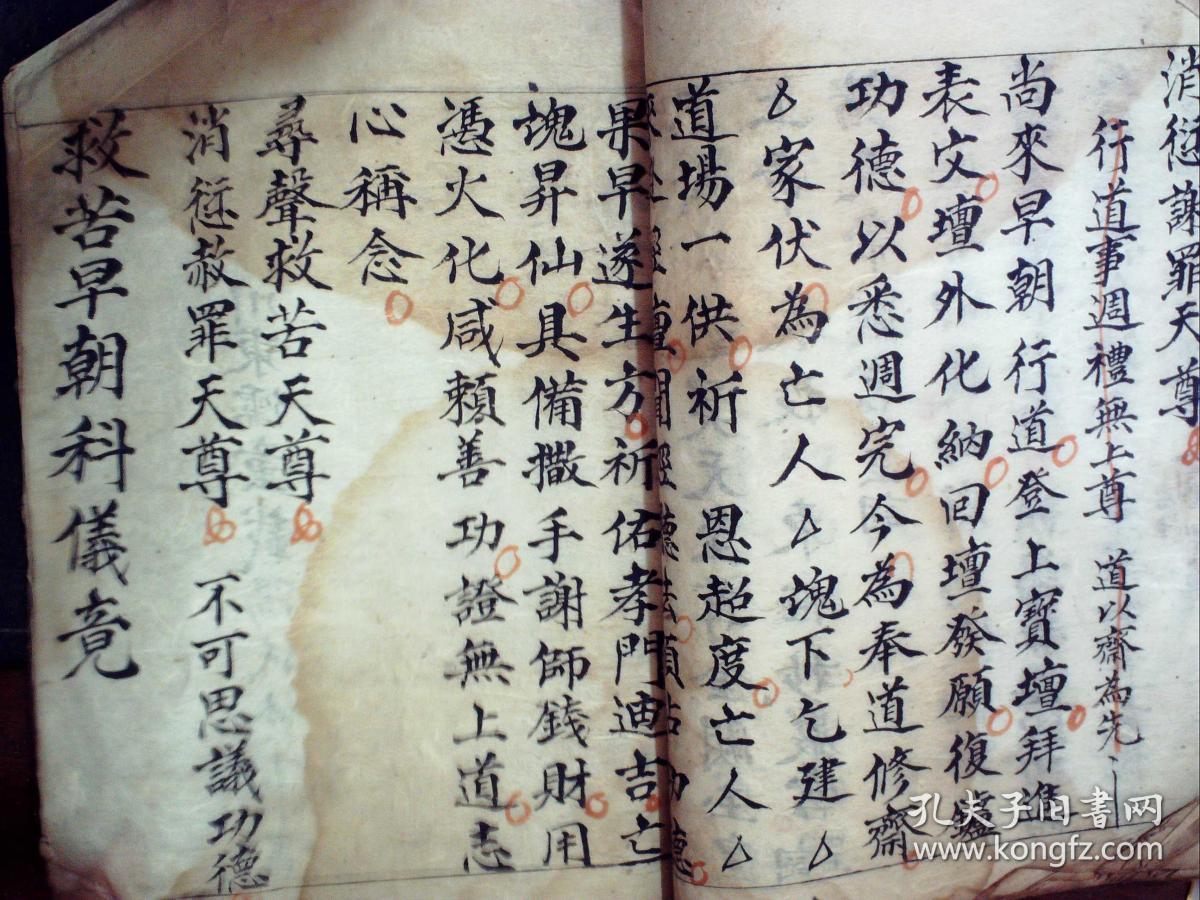 消愆謝罪天尊
行道事週禮無上尊 道以齋為先
尚來早朝行道登上寶壇拜進
表文壇外化納回壇發願復爐
功德以悉週完今為奉道修齋
厶家伏為亡人厶魂下乞建厶
道場一供祈 恩超度亡人厶
果早遂生方祈佑孝門迪吉亡
魂昇仙具備撒手謝師錢財用
憑火化咸賴善功證無上道志
心稱念
尋聲救苦天尊
消愆赦罪天尊 不可思議功德
救苦早朝科儀竟
孔夫子旧书网
www.kongfz.com